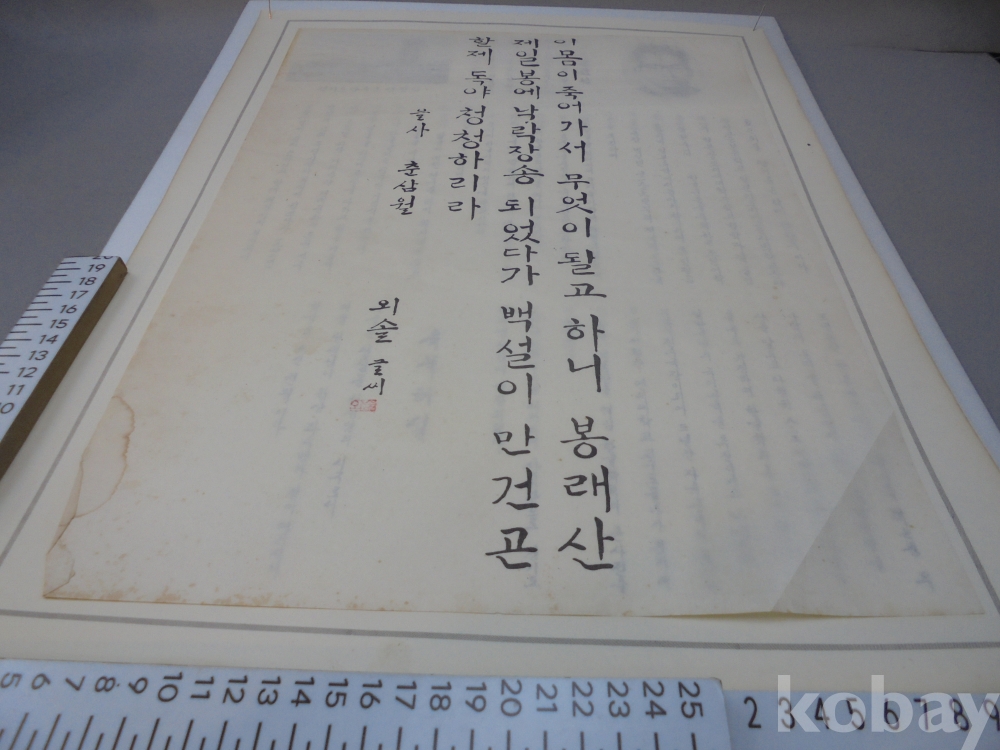 이 몸이 죽어가서 무엇이 될고 하니 봉래산
제일봉에 낙락장송 되었다가 백설이 만건곤
할제 독야 청청하리라
을사 춘삼월
외솔 글씨
20 19 18 17 16 15 14 13 12 11 10
5 6 7 8 9 10 11 12 13 14 15 16 17 18 19 20 21 22 23 24 25
2 3 4 5 6 7 8 9
kobay